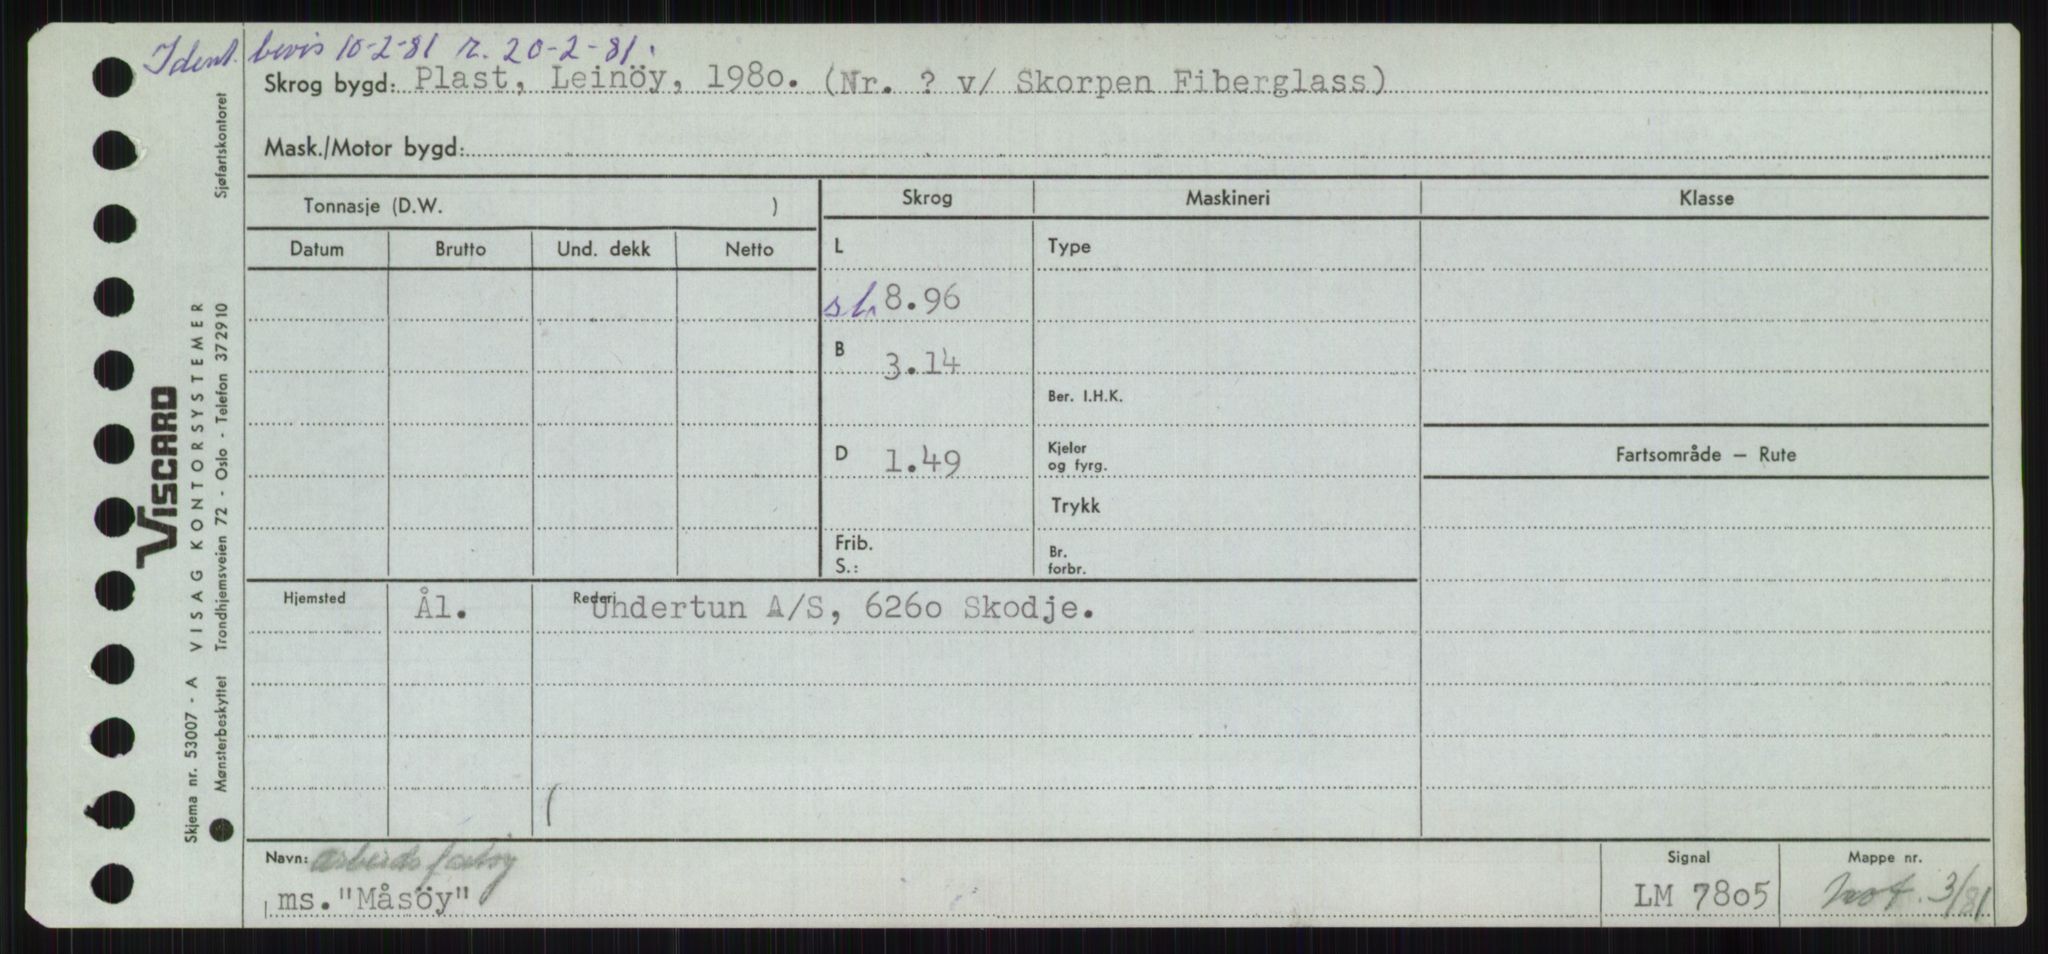 Ident. bevis 10-2-81 r. 20-2-81.
Skrog bygd: Plast, Leinöy, 1980. (Nr. ? v/ Skorpen Fiberglass)
Mask./Motor bygd:
Tonnasje (D.W. )
Datum Brutto Und. dekk Netto
Skrog Maskineri Klasse
L Type
sl. 8.96
B 3.14
Ber. I.H.K.
D 1.49
Kjeler
og fyrg.
Fartsområde – Rute
Trykk
Frib.
S.:
Br.
forbr.
Hjemsted Ål. Rederi Undertun A/S, 6260 Skodje.
(
Navn: arbeidsfartøy
ms. "Måsöy"
Signal
LM 7805
Mappe nr.
not. 3/81
Sjøfartskontoret
VISCARD
VISAG KONTORSYSTEMER
Trondhjemsveien 72 - Oslo - Telefon 372910
Skjema nr. 53007 - A
Mønsterbeskyttet